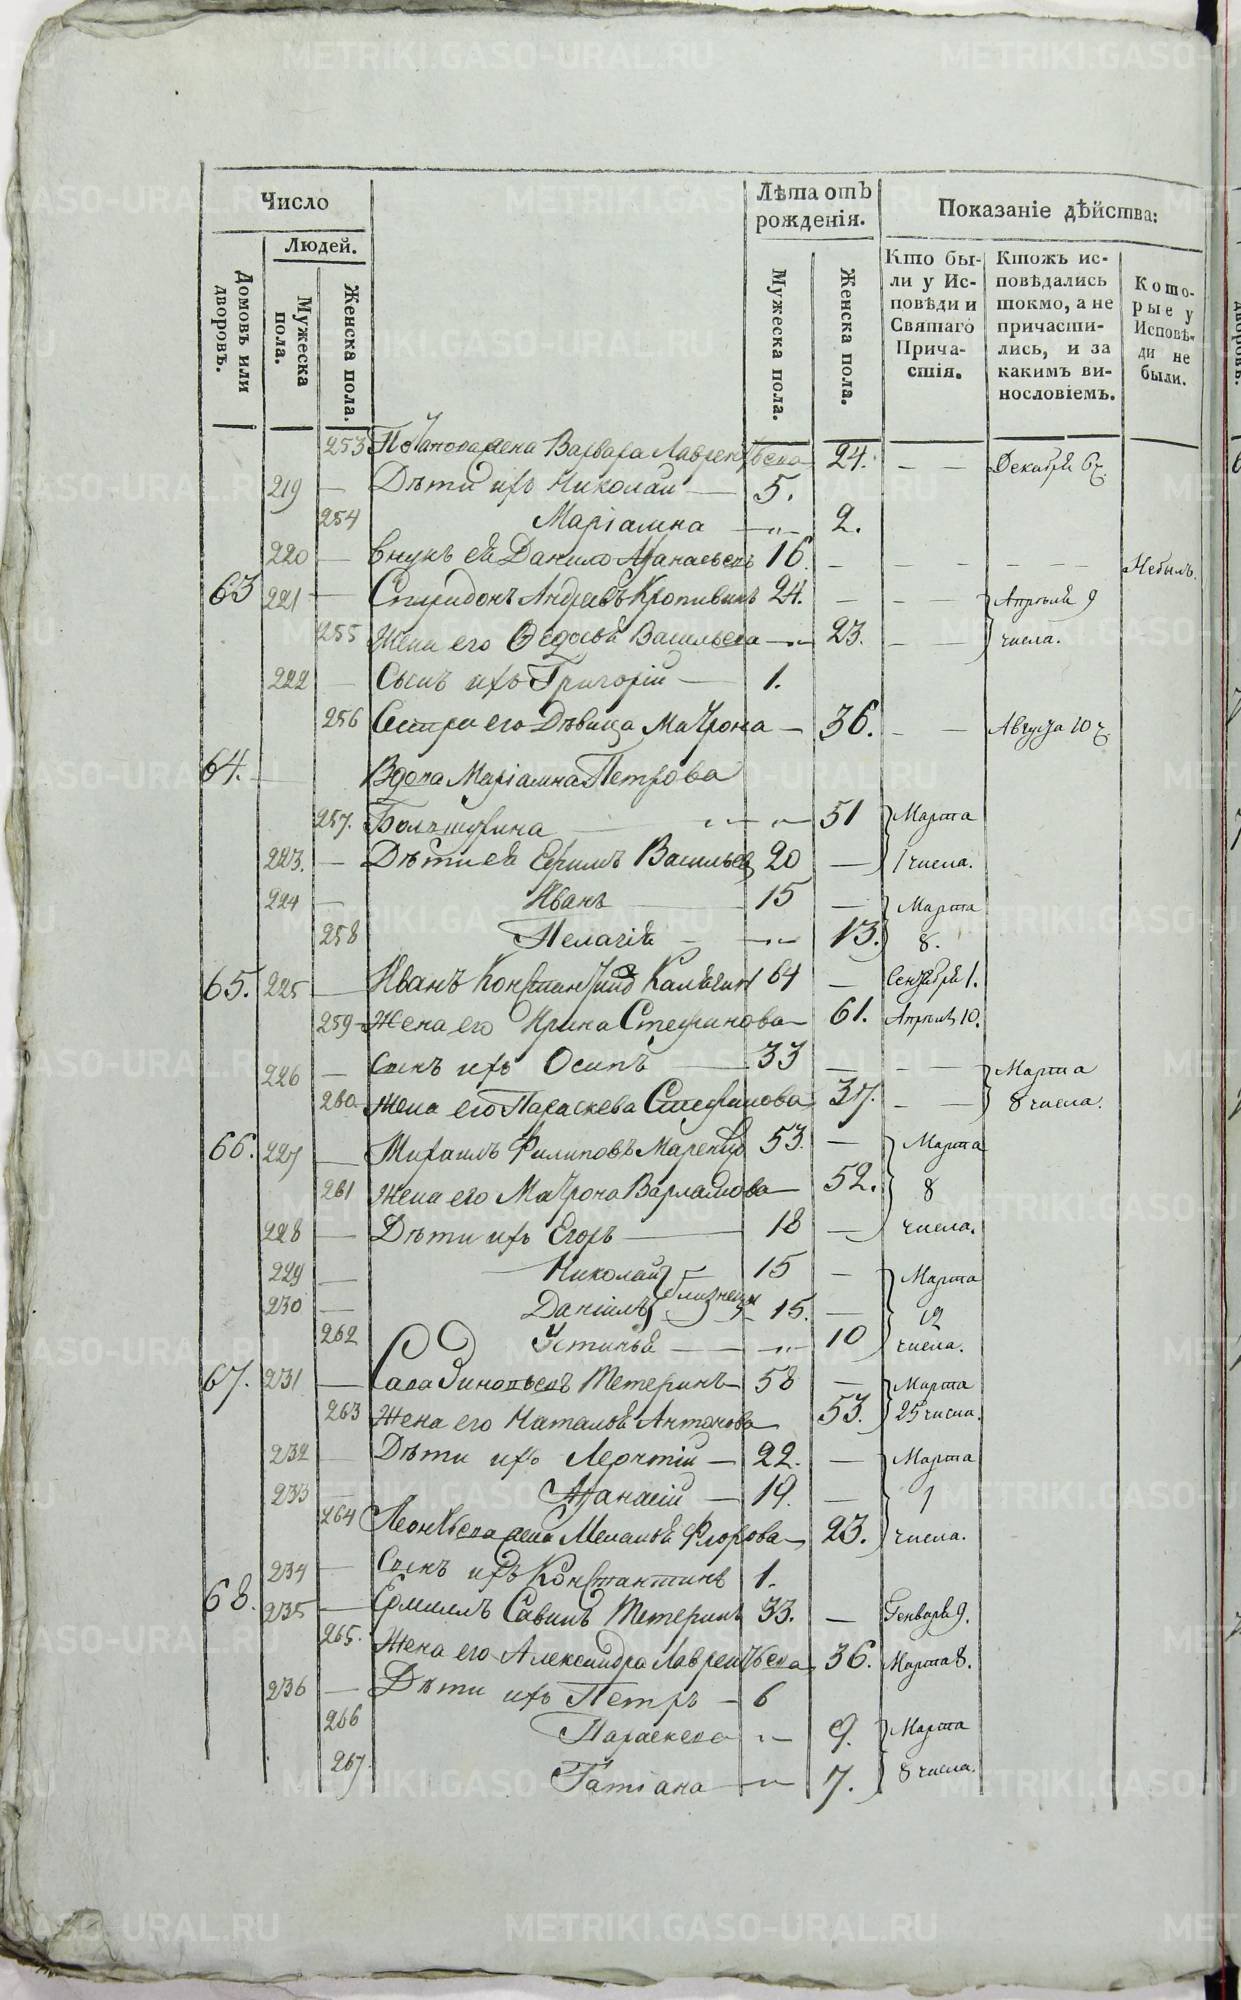 Число
Людей.
Домовъ или дворовъ.
Мужеска пола.
Женска пола.
Лѣта отъ рожденія.
Мужеска пола.
Женска пола.
Показаніе дѣйства:
Кто бы-
ли у Ис-
повѣди и
Святаго
Прича-
стія.
Ктожъ ис-
повѣдались
токмо, а не
причасти-
лись, и за
какимъ ви-
нословіемъ.
Кото-
рые у
Исповѣ-
ди не
были.
253 жена Варвара Лаврентьева 24. — — Декабря 6 ч.
219 — Дѣти ихъ Николай — 5.
254 Маріамна — „ — 2.
220 — Внукъ ея Данило Афанасьевъ 16. — — — — Небылъ.
63 221 — Спиридонъ Андреевъ Кропивинъ 24. — — — Апрѣля 9
255 Жена его Ѳедосья Васильева — „ — 23. — — числа.
222 — Сынъ ихъ Григорій — 1.
256 Сестра его Дѣвица Матрона — 36. — — Августа 10 ч.
64. — Вдова Маріамна Петрова
257. — „ — „ — 51 Марта
223. — Дѣти ея Ефимъ Васильевъ 20 — 1 числа.
224 — Иванъ — 15 — Марта
258 Пелагія — „ — 13. 8.
65. 225 — Иванъ Константиновъ 61 — Сентября 1.
259 — Жена его Ирина Стефанова — 61. Апрѣля 10.
226 — Сынъ ихъ Осипъ — 33 — — — Марта
260 Жена его Параскева Стефанова 37. — — 8 числа.
66. 227 — Михаилъ Филиповъ 53. — Марта
261 Жена его Матрона Варламова — 52. 8
228 — Дѣти ихъ Егоръ — 18 — числа.
229 — Николай — 15 — Марта
близнецы
230 — Даніилъ — 15. — 12
262 Устинья — — „ — 10 числа.
67. 231 — Сава Зиновьевъ Тетеринъ — 58 — Марта
263 Жена его Наталья Антонова 53. 25 числа.
232 — Дѣти ихъ Леонтій — 22. — Марта
233 — Афанасій — 19. — 1
264 Леонтьева жена Меланья Флорова — 23. числа.
234 — Сынъ ихъ Константинъ 1.
68. 235 — Ермилъ Савинъ Тетеринъ 33. — Генваря 9.
265. Жена его Александра Лаврентьева 36. Марта 8.
236 — Дѣти ихъ Петръ — 6
266 Параскева „ — 9. Марта
267. Татіана — „ — 7. 8 числа.
METRIKI.GASO-URAL.RU